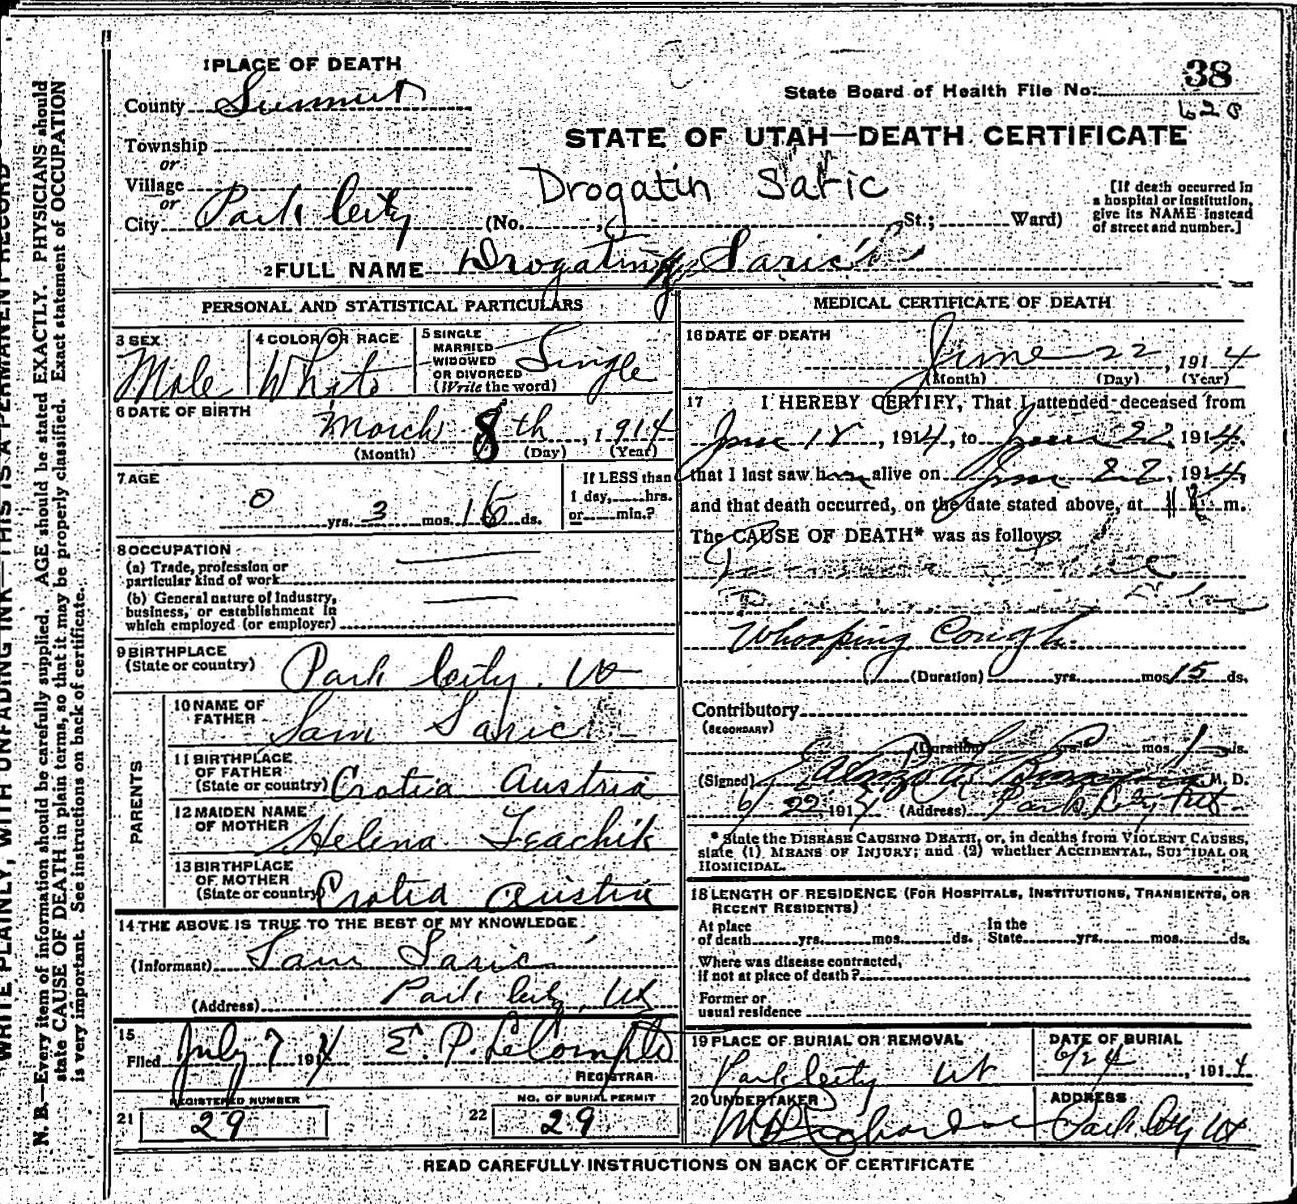 1 PLACE OF DEATH
38
County Summit
State Board of Health File No.
620
Township
STATE OF UTAH—DEATH CERTIFICATE
or
Village
Drogatin Saric
or
City Park City (No. St.; Ward)
[If death occurred in
a hospital or institution,
give its NAME instead
of street and number.]
2 FULL NAME Drogatin Saric
PERSONAL AND STATISTICAL PARTICULARS
3 SEX
Male
4 COLOR OR RACE
White
5 SINGLE
MARRIED
WIDOWED
OR DIVORCED
(Write the word)
Single
6 DATE OF BIRTH
March 8th, 1914
(Month) (Day) (Year)
7 AGE
0 yrs. 3 mos. 15 ds.
If LESS than
1 day, hrs.
or min.?
8 OCCUPATION
(a) Trade, profession or
particular kind of work
(b) General nature of Industry,
business, or establishment in
which employed (or employer)
9 BIRTHPLACE
(State or country) Park City. Ut
PARENTS
10 NAME OF
FATHER Sam Saric
11 BIRTHPLACE
OF FATHER
(State or country) Crotia Austria
12 MAIDEN NAME
OF MOTHER Helena
13 BIRTHPLACE
OF MOTHER
(State or country) Crotia Austria
14 THE ABOVE IS TRUE TO THE BEST OF MY KNOWLEDGE
(Informant) Sam Saric
(Address) Park City, Ut
15
Filed July 7 1914 E. P. LeCompte
REGISTRAR
REGISTERED NUMBER
21 29
NO. OF BURIAL PERMIT
22 29
MEDICAL CERTIFICATE OF DEATH
16 DATE OF DEATH
June 22, 1914
(Month) (Day) (Year)
17 I HEREBY CERTIFY, That I attended deceased from
June 18, 1914, to June 22, 1914,
that I last saw him alive on June 22, 1914,
and that death occurred, on the date stated above, at m.
The CAUSE OF DEATH* was as follows:
Whooping Cough
(Duration) yrs. mos. 15 ds.
Contributory
(SECONDARY)
(Duration) yrs. mos. ds.
(Signed) M. D.
6/22 1914 (Address) Park City Ut
* State the DISEASE CAUSING DEATH, or, in deaths from VIOLENT CAUSES,
state (1) MEANS OF INJURY; and (2) whether ACCIDENTAL, SUICIDAL OR
HOMICIDAL.
18 LENGTH OF RESIDENCE (FOR HOSPITALS, INSTITUTIONS, TRANSIENTS, OR
RECENT RESIDENTS)
At place
of death yrs. mos. ds.
In the
State yrs. mos. ds.
Where was disease contracted,
if not at place of death?
Former or
usual residence
19 PLACE OF BURIAL OR REMOVAL
Park City Ut
DATE OF BURIAL
6/24, 1914
20 UNDERTAKER
ADDRESS
Park City Ut
READ CAREFULLY INSTRUCTIONS ON BACK OF CERTIFICATE
WRITE PLAINLY, WITH UNFADING INK—THIS IS A PERMANENT RECORD
N. B.—Every item of information should be carefully supplied. AGE should be stated EXACTLY. PHYSICIANS should
state CAUSE OF DEATH in plain terms, so that it may be properly classified. Exact statement of OCCUPATION
is very important. See instructions on back of certificate.